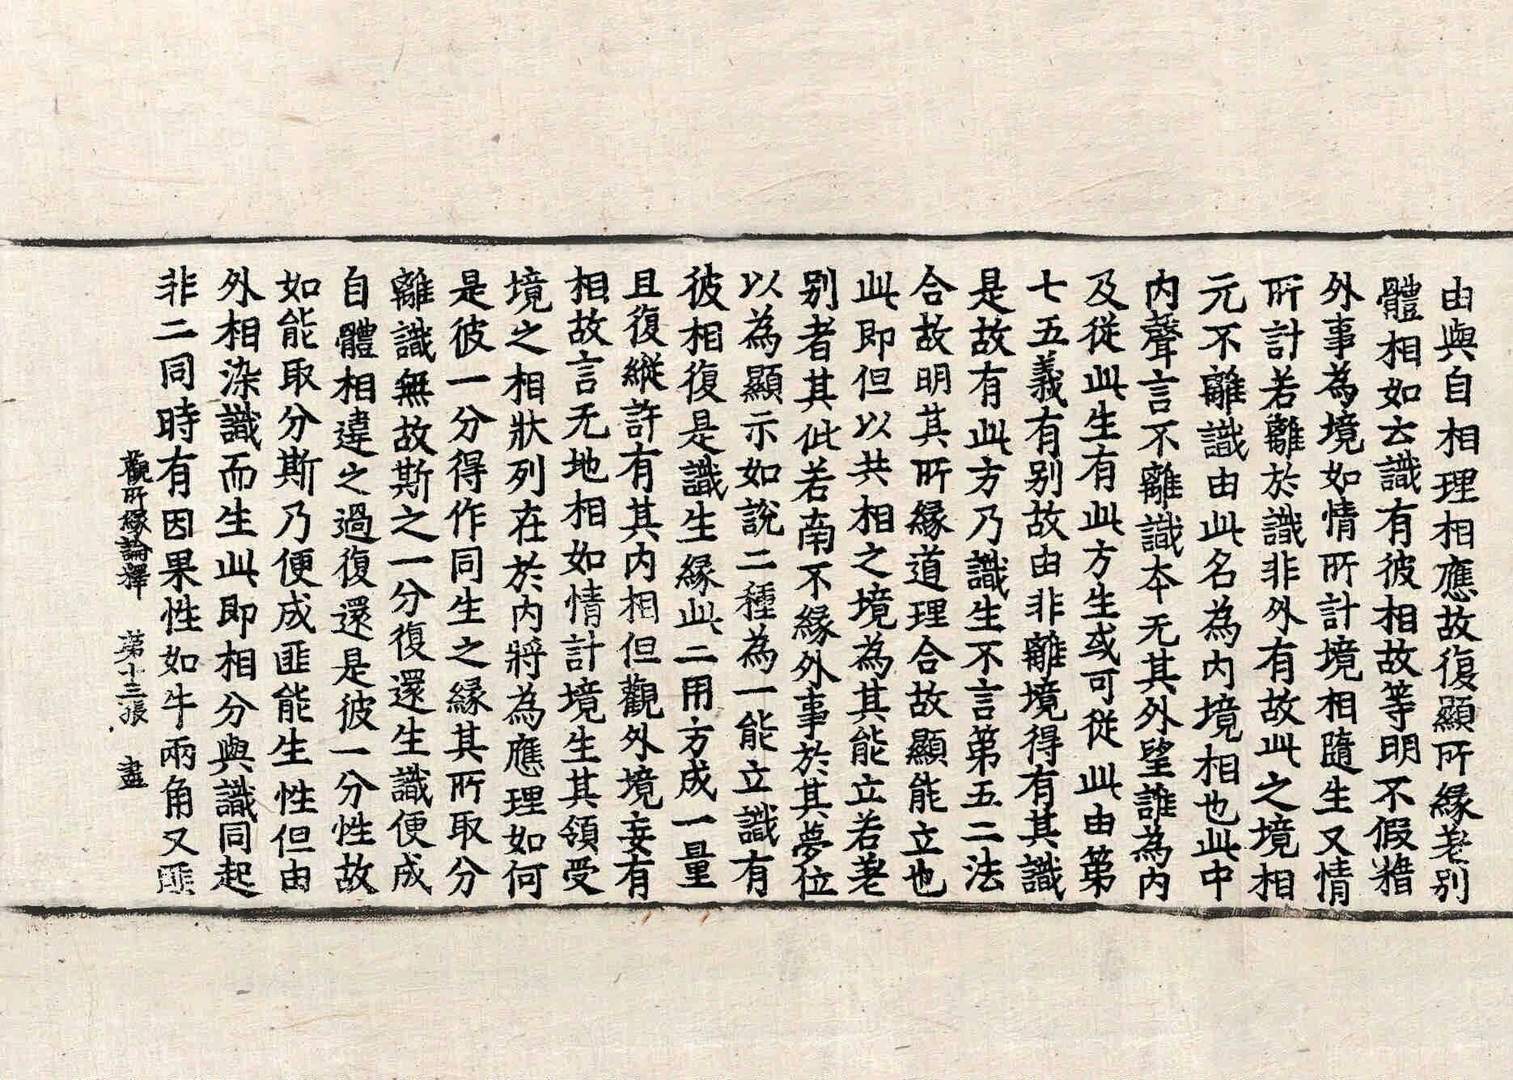 由與自相理相應故復顯所緣差別
體相如去識有彼相故等明不假籍
外事為境如情所計境相隨生又情
所計若離於識非外有故此之境相
元不離識由此名為內境相也此中
內聲言不離識本无其外望誰為內
及從此生有此方生或可從此由第
七五義有別故由非離境得有其識
是故有此方乃識生不言第五二法
合故明其所緣道理合故顯能立也
此即但以共相之境為其能立若差
別者其此若南不緣外事於其夢位
以為顯示如說二種為一能立識有
彼相復是識生緣此二用方成一量
且復縱許有其內相但觀外境妄有
相故言无地相如情計境生其領受
境之相狀列在於內將為應理如何
是彼一分得作同生之緣其所取分
離識無故斯之一分復還生識便成
自體相違之過復還是彼一分性故
如能取分斯乃便成匪能生性但由
外相染識而生此即相分與識同起
非二同時有因果性如牛兩角又匪
觀所緣論釋 第十三張 盡